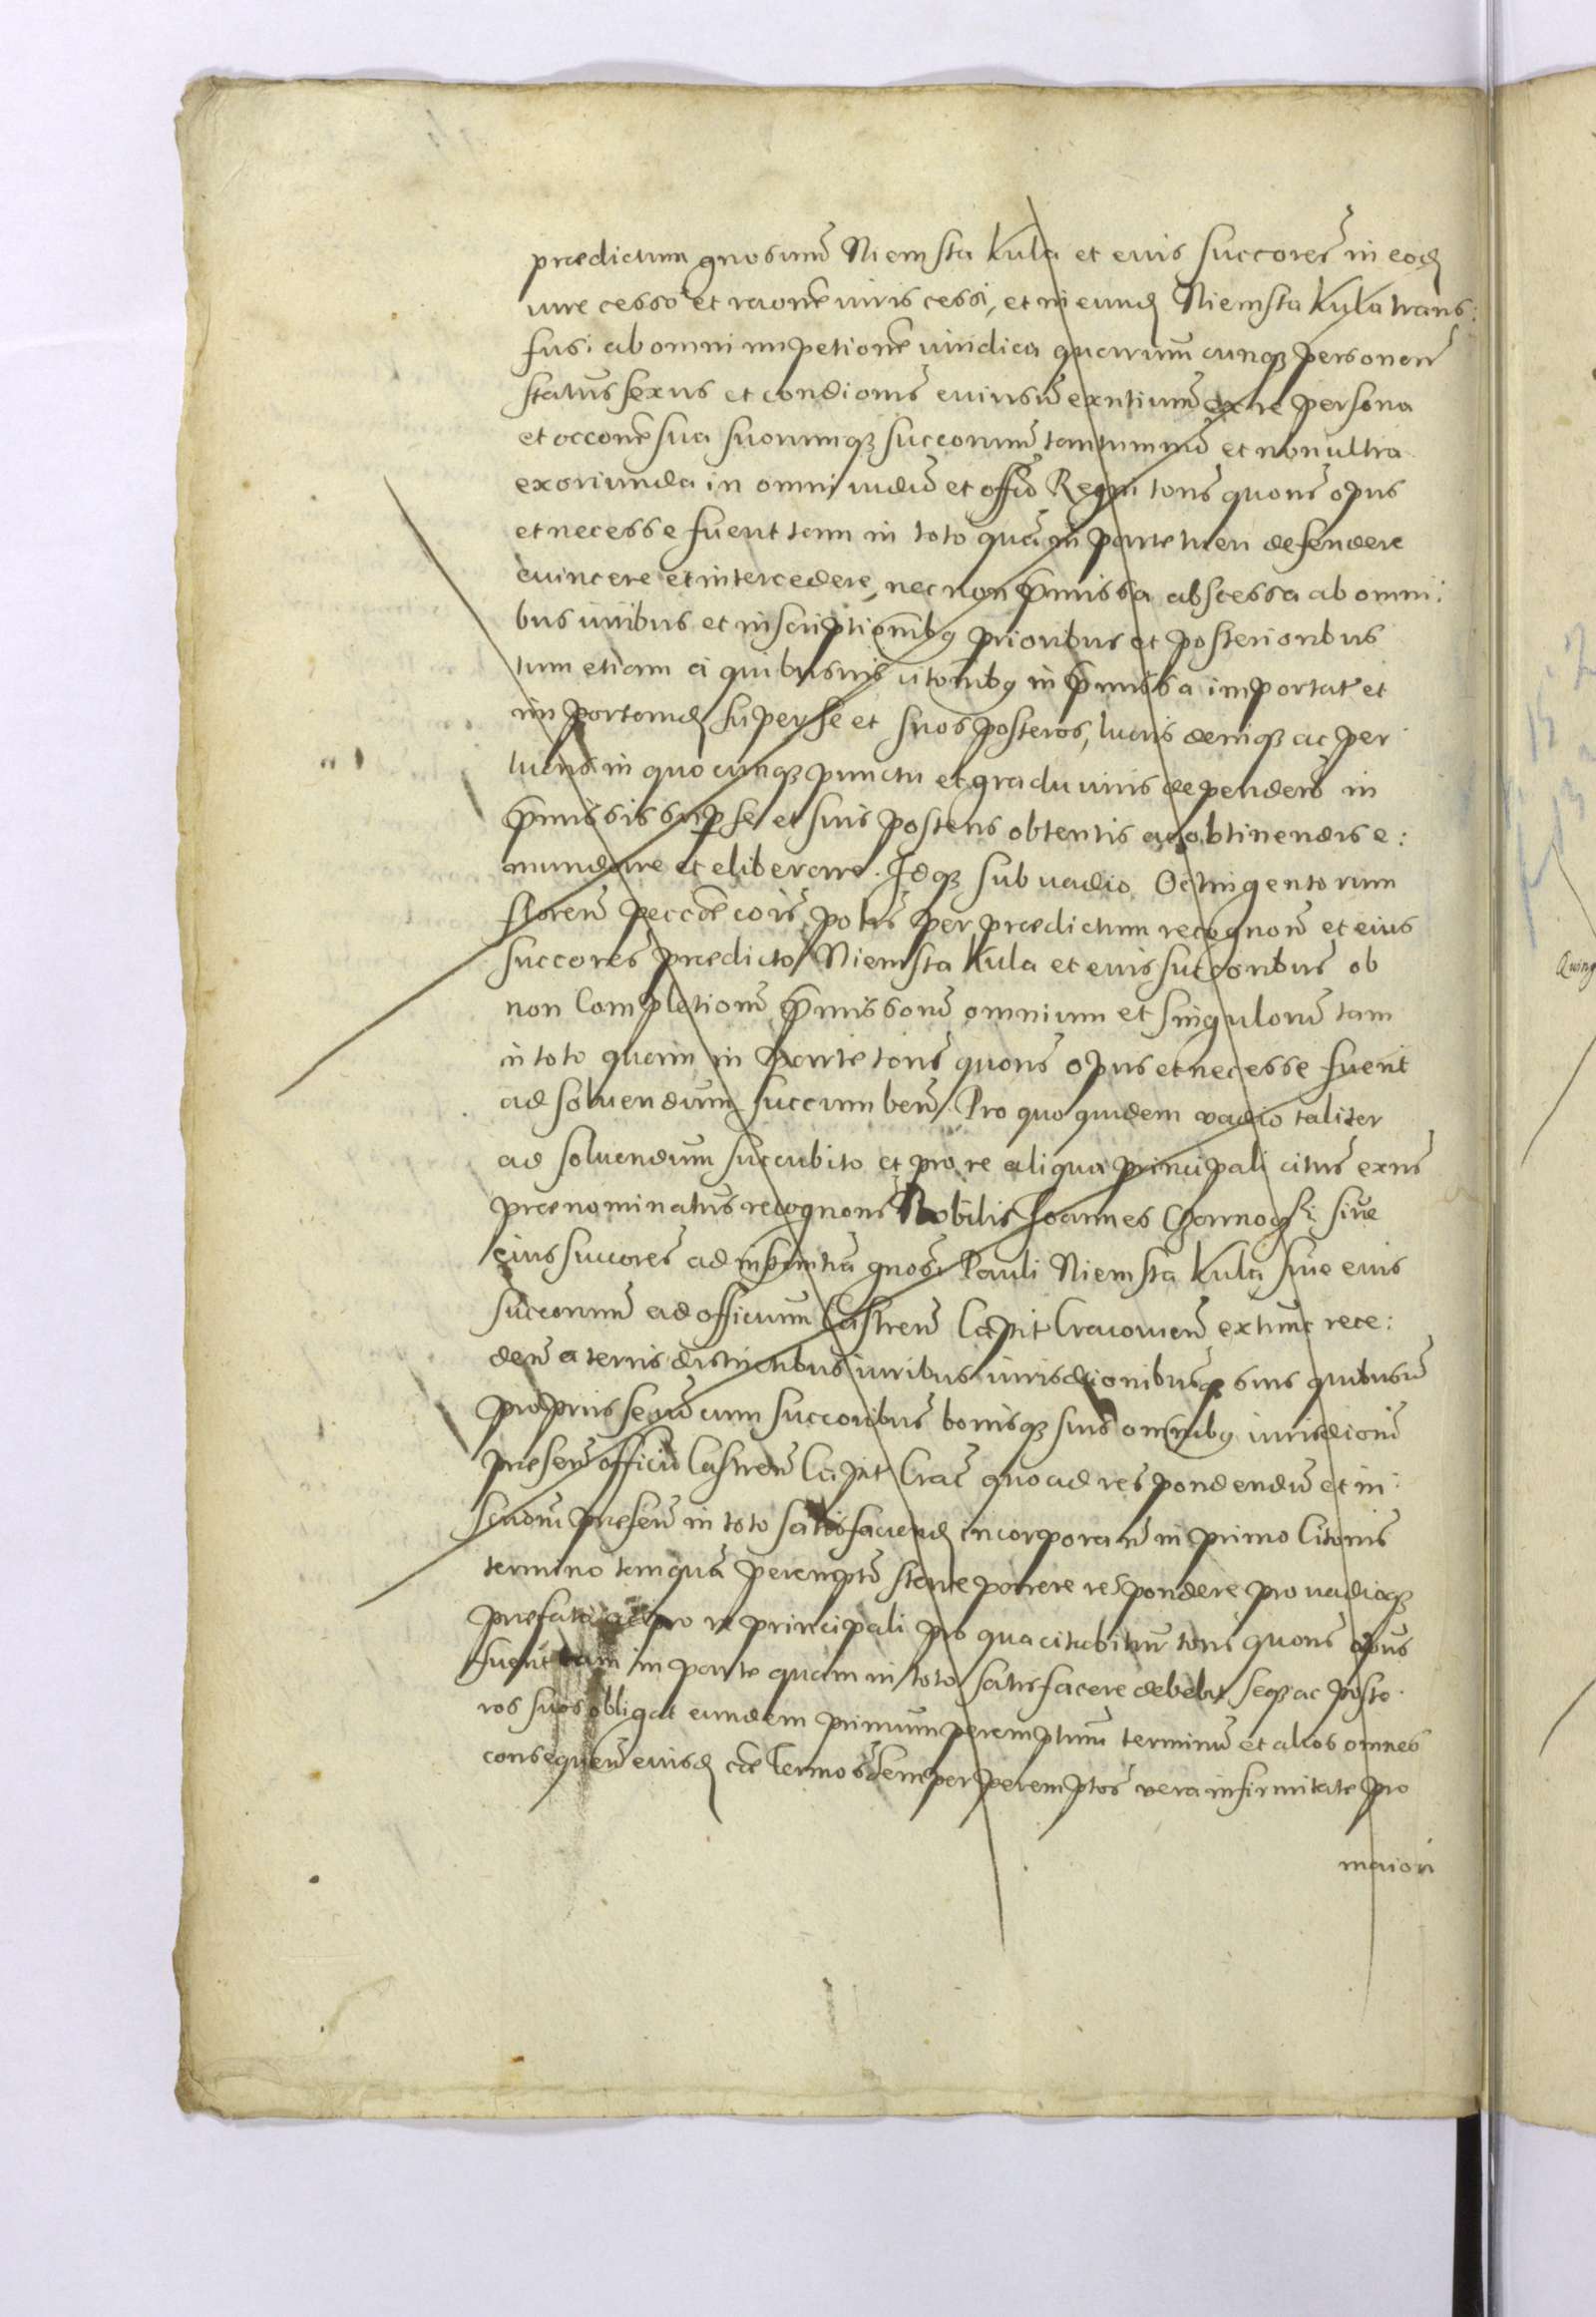 prædictum gnosum Niemsta Kula et eius succores in eod
iure cesso et raone iuris cessi, et in eund Niemsta Kula trans:
fusi ab omni impetione iuridica quarumcunq personar
status sexus et condionis cuiusvis extium ex re persona
et occone sua suorumq succorum tantummo et non ultra
exoriunda in omni iudio et offio Regni tons quons opus
et necesse fuerit tam in toto qua in parte tueri defendere
evincere et intercedere, nec non pmissa abscessa ab omni:
bus iuribus et inscriptionibg prioribus et posterioribus
tum etiam a quibusvis itonibg in pmissa importat et
importand super se et suos posteros, lucris deniq ac per
lucris in quocunq punctu et gradu iuris dependen in
pmissis sup se et suis posteris obtentis ac obtinendis e:
mundare et eliberare. Idq sub vadio Octingentorum
floren peccae cois polis per prædictum recognon et eius
succores prædicto Niemsta Kula et eius succoribus ob
non Completionem pmissoru omnium et singuloru tam
in toto quam in parte tons quons opus et necesse fuerit
ad solvendum succumben. Pro quo quidem vadio taliter
ad solvendum succubito et pro re aliqua principali citus exns
prænominatus recognons Nobilis Joannes Czarnoczki sive
eius succores ad instantia gnosi Pauli Niemsta Kula sive eius
succorum ad officium Castren Capit Cracovien extunc rece:
den a terris districtibus iuribus iurisdionibusq suis quibusvis
propriis se cum succoribus bonisq suis omnibg iurisdioni
presen officio Castren Capit Crac quo ad respondendu et in:
scrioni presen in toto satisfaciend incorporan in primo Citonis
termino tanqua perempto stare parere respondere pro vadioq
prefato ac pro re principali pro qua citabitur tons quons opus
fuerit tam in parte quam in toto satisfacere debebit seq ac poste
ros suos obligat eundem primum peremptum terminu et alios omnes
consequen eiusd cae Termos semper peremptos vera infirmitate pro
maiori